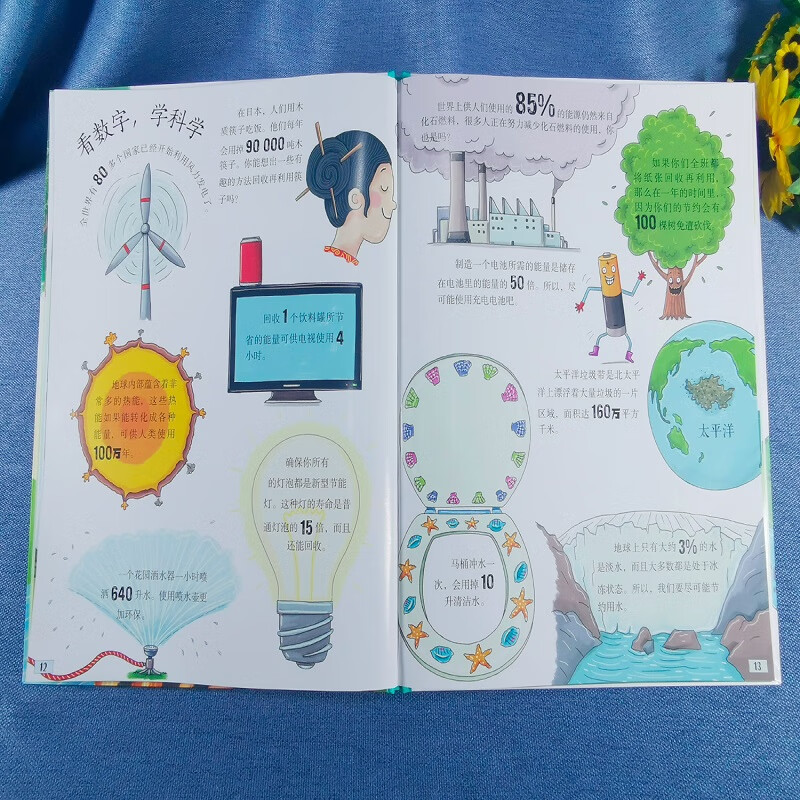 看数字，学科学
全世界有80多个国家已经开始利用风力发电了。
在日本，人们用木
质筷子吃饭。他们每年
会用掉90 000吨木
筷子。你能想出一些有
趣的方法回收再利用筷
子吗？
回收1个饮料罐所节
省的能量可供电视使用4
小时。
地球内部蕴含着非
常多的热能，这些热
能如果能转化成各种
能量，可供人类使用
100万年。
确保你所有
的灯泡都是新型节能
灯。这种灯的寿命是普
通灯泡的15倍，而且
还能回收。
一个花园洒水器一小时喷
洒640升水。使用喷水壶更
加环保。
12
世界上供人们使用的85%的能源仍然来自
化石燃料，很多人正在努力减少化石燃料的使用，你
也是吗？
如果你们全班都
将纸张回收再利用，
那么在一年的时间里，
因为你们的节约会有
100棵树免遭砍伐
制造一个电池所需的能量是储存
在电池里的能量的50倍。所以，尽
可能使用充电电池吧。
太平洋垃圾带是北太平
洋上漂浮着大量垃圾的一片
区域，面积达160万平方
千米。
太平洋
马桶冲水一
次，会用掉10
升清洁水。
地球上只有大约3%的水
是淡水，而且大多数都是处于冰
冻状态。所以，我们要尽可能节
约用水。
13